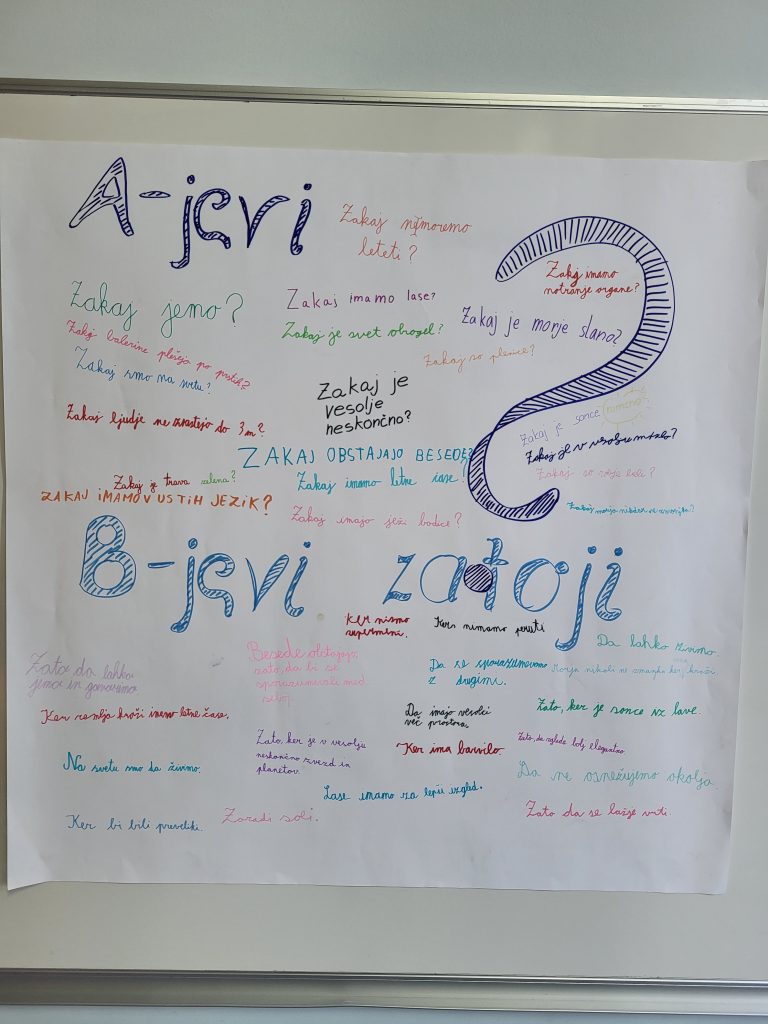 A-jevi
Zakaj ne moremo
leteti?
Zakaj imamo
notranje organe?
Zakaj jemo?
Zakaj imamo lase?
Zakaj je svet okrogel?
Zakaj je morje slano?
Zakaj balerine plešejo po prstih?
Zakaj so plenice?
Zakaj smo na svetu?
Zakaj je
vesolje
neskončno?
Zakaj ljudje ne zrastejo do 3m?
Zakaj je sonce rumeno?
Zakaj je v vesolju mrzlo?
ZAKAJ OBSTAJAJO BESEDE?
Zakaj je trava zelena?
Zakaj imamo letne čase?
Zakaj so
ZAKAJ IMAMO V USTIH JEZIK?
Zakaj imajo ježi bodice?
Zakaj morja nikoli ne
B-jevi zatoji
Ker nismo
supermeni.
Ker nimamo peruti
Da lahko živimo.
Zato da lahko
jemo in govorimo
Besede obstajajo
zato, da bi se
sporazumevali med
seboj.
Da se sporazumevamo
z drugimi.
Morja nikoli ne zmanjka ker kroži
voda
Ker zemlja kroži imamo letne čase.
Da imajo vesoljci
več prostora.
Zato, ker je sonce iz lave.
Zato, ker je v vesolju
neskončno zvezd in
planetov.
Ker ima barvilo.
Zato, da zgleda bolj elegantno.
Na svetu smo da živimo.
Da ne onesnažujemo okolja.
Lase imamo za lepši izgled.
Ker bi bili preveliki.
Zaradi soli.
Zato da se lažje vrti.